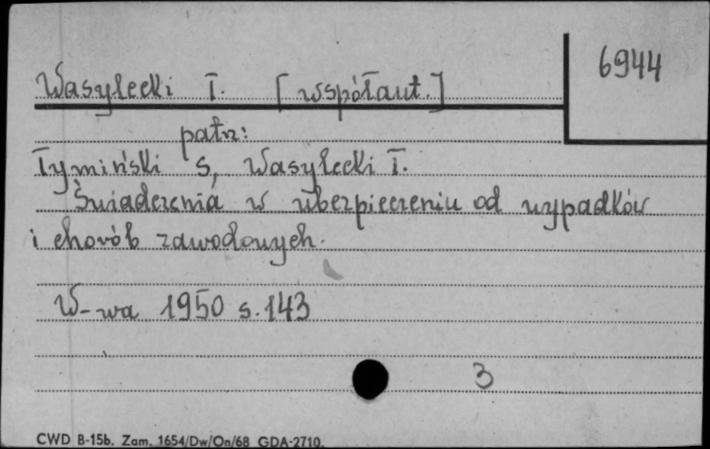 6944
Wasylecki T. [współaut.]
patrz:
Tymiński S, Wasylecki T.
Świadczenia w ubezpieczeniu od wypadków
i chorób zawodowych.
W-wa 1950 s. 143
3
CWD B-15b. Zam. 1654/Dw/On/68 GDA-2710.